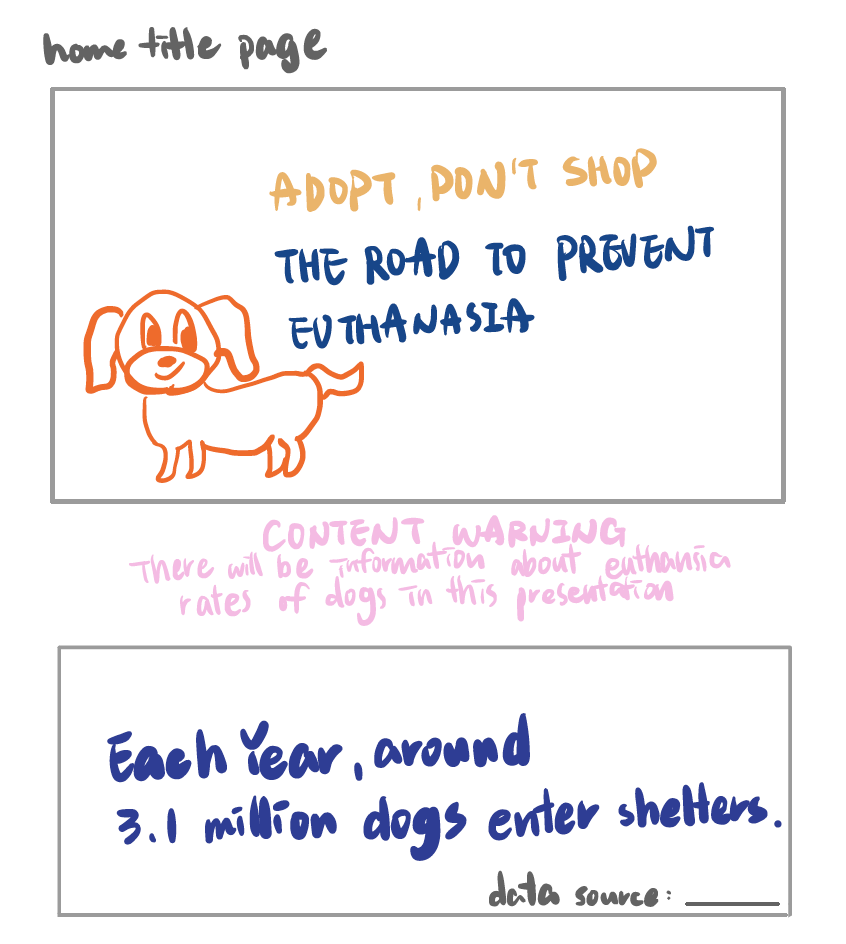 home title page
ADOPT, DON'T SHOP
THE ROAD TO PREVENT
EUTHANASIA
CONTENT WARNING
There will be information about euthansia
rates of dogs in this presentation
Each Year, around
3.1 million dogs enter shelters.
data source: ______